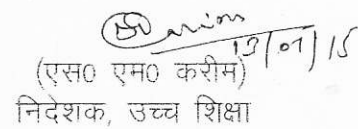 13/07/15
(एस0 एम0 करीम)
निदेशक, उच्च शिक्षा